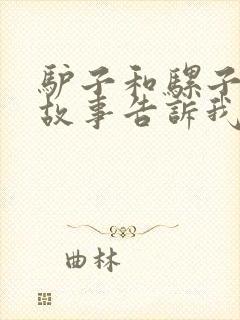 驴子和骡子
故事告訴我
曲林